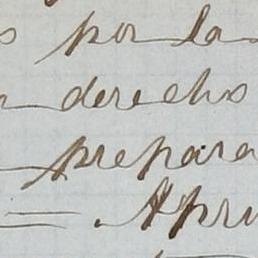 s por la
derecho
prepara
= Apru